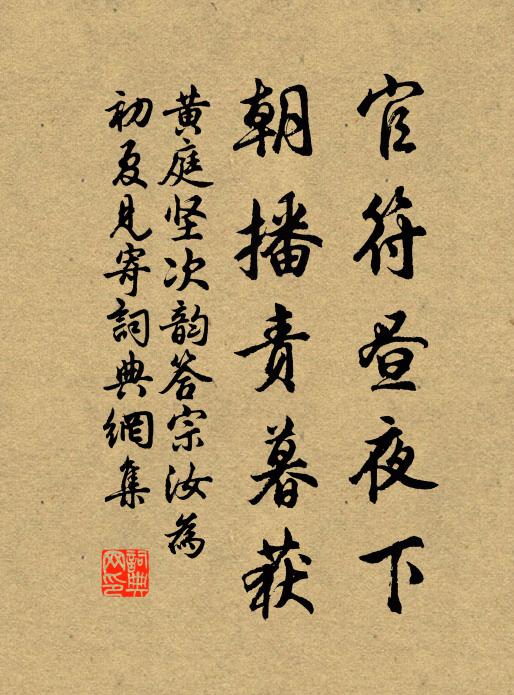 官符昼夜下
朝播责暮获
黄庭坚次韵答宗汝为
初夏见寄詞典網集
詞典網印